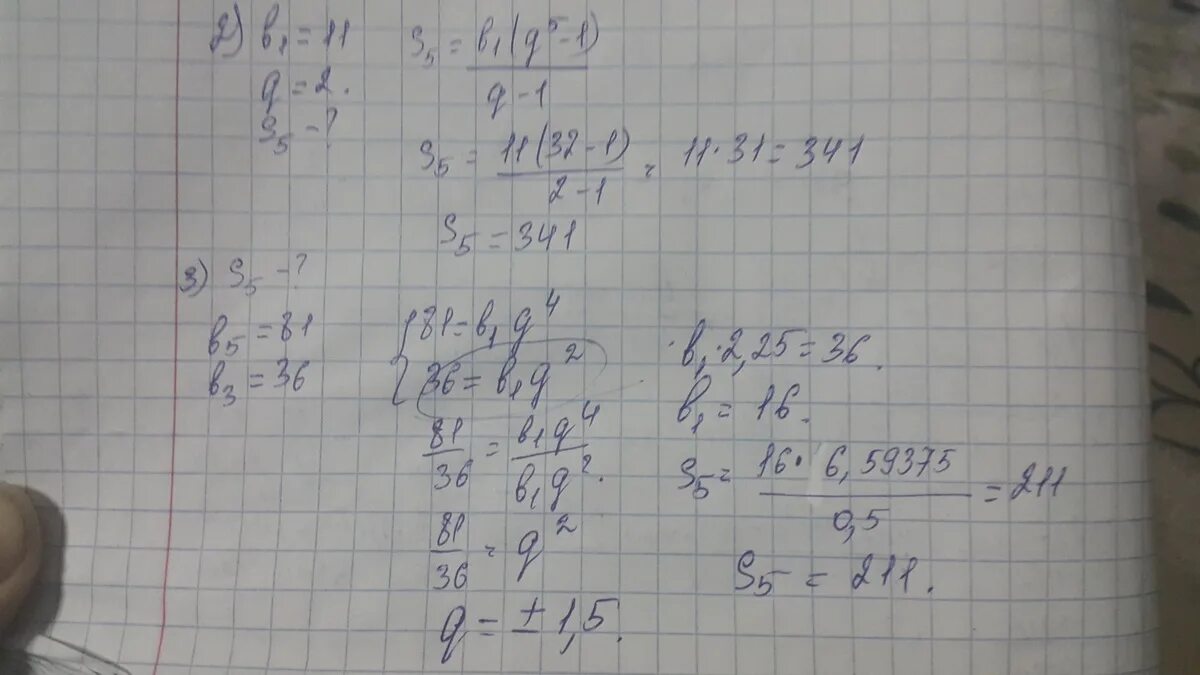 2) b₁ = 11
q = 2.
S₅ - ?
S₅ = b₁(q⁵-1) / q-1
S₅ = 11(32-1) / 2-1 = 11·31 = 341
S₅ = 341
3) S₅ - ?
b₅ = 81
b₃ = 36
{ 81 = b₁q⁴
36 = b₁q²
81/36 = b₁q⁴/b₁q².
81/36 = q²
q = ±1,5.
b₁·2,25 = 36.
b₁ = 16.
S₅ = 16·6,59375 / 0,5 = 211
S₅ = 211.